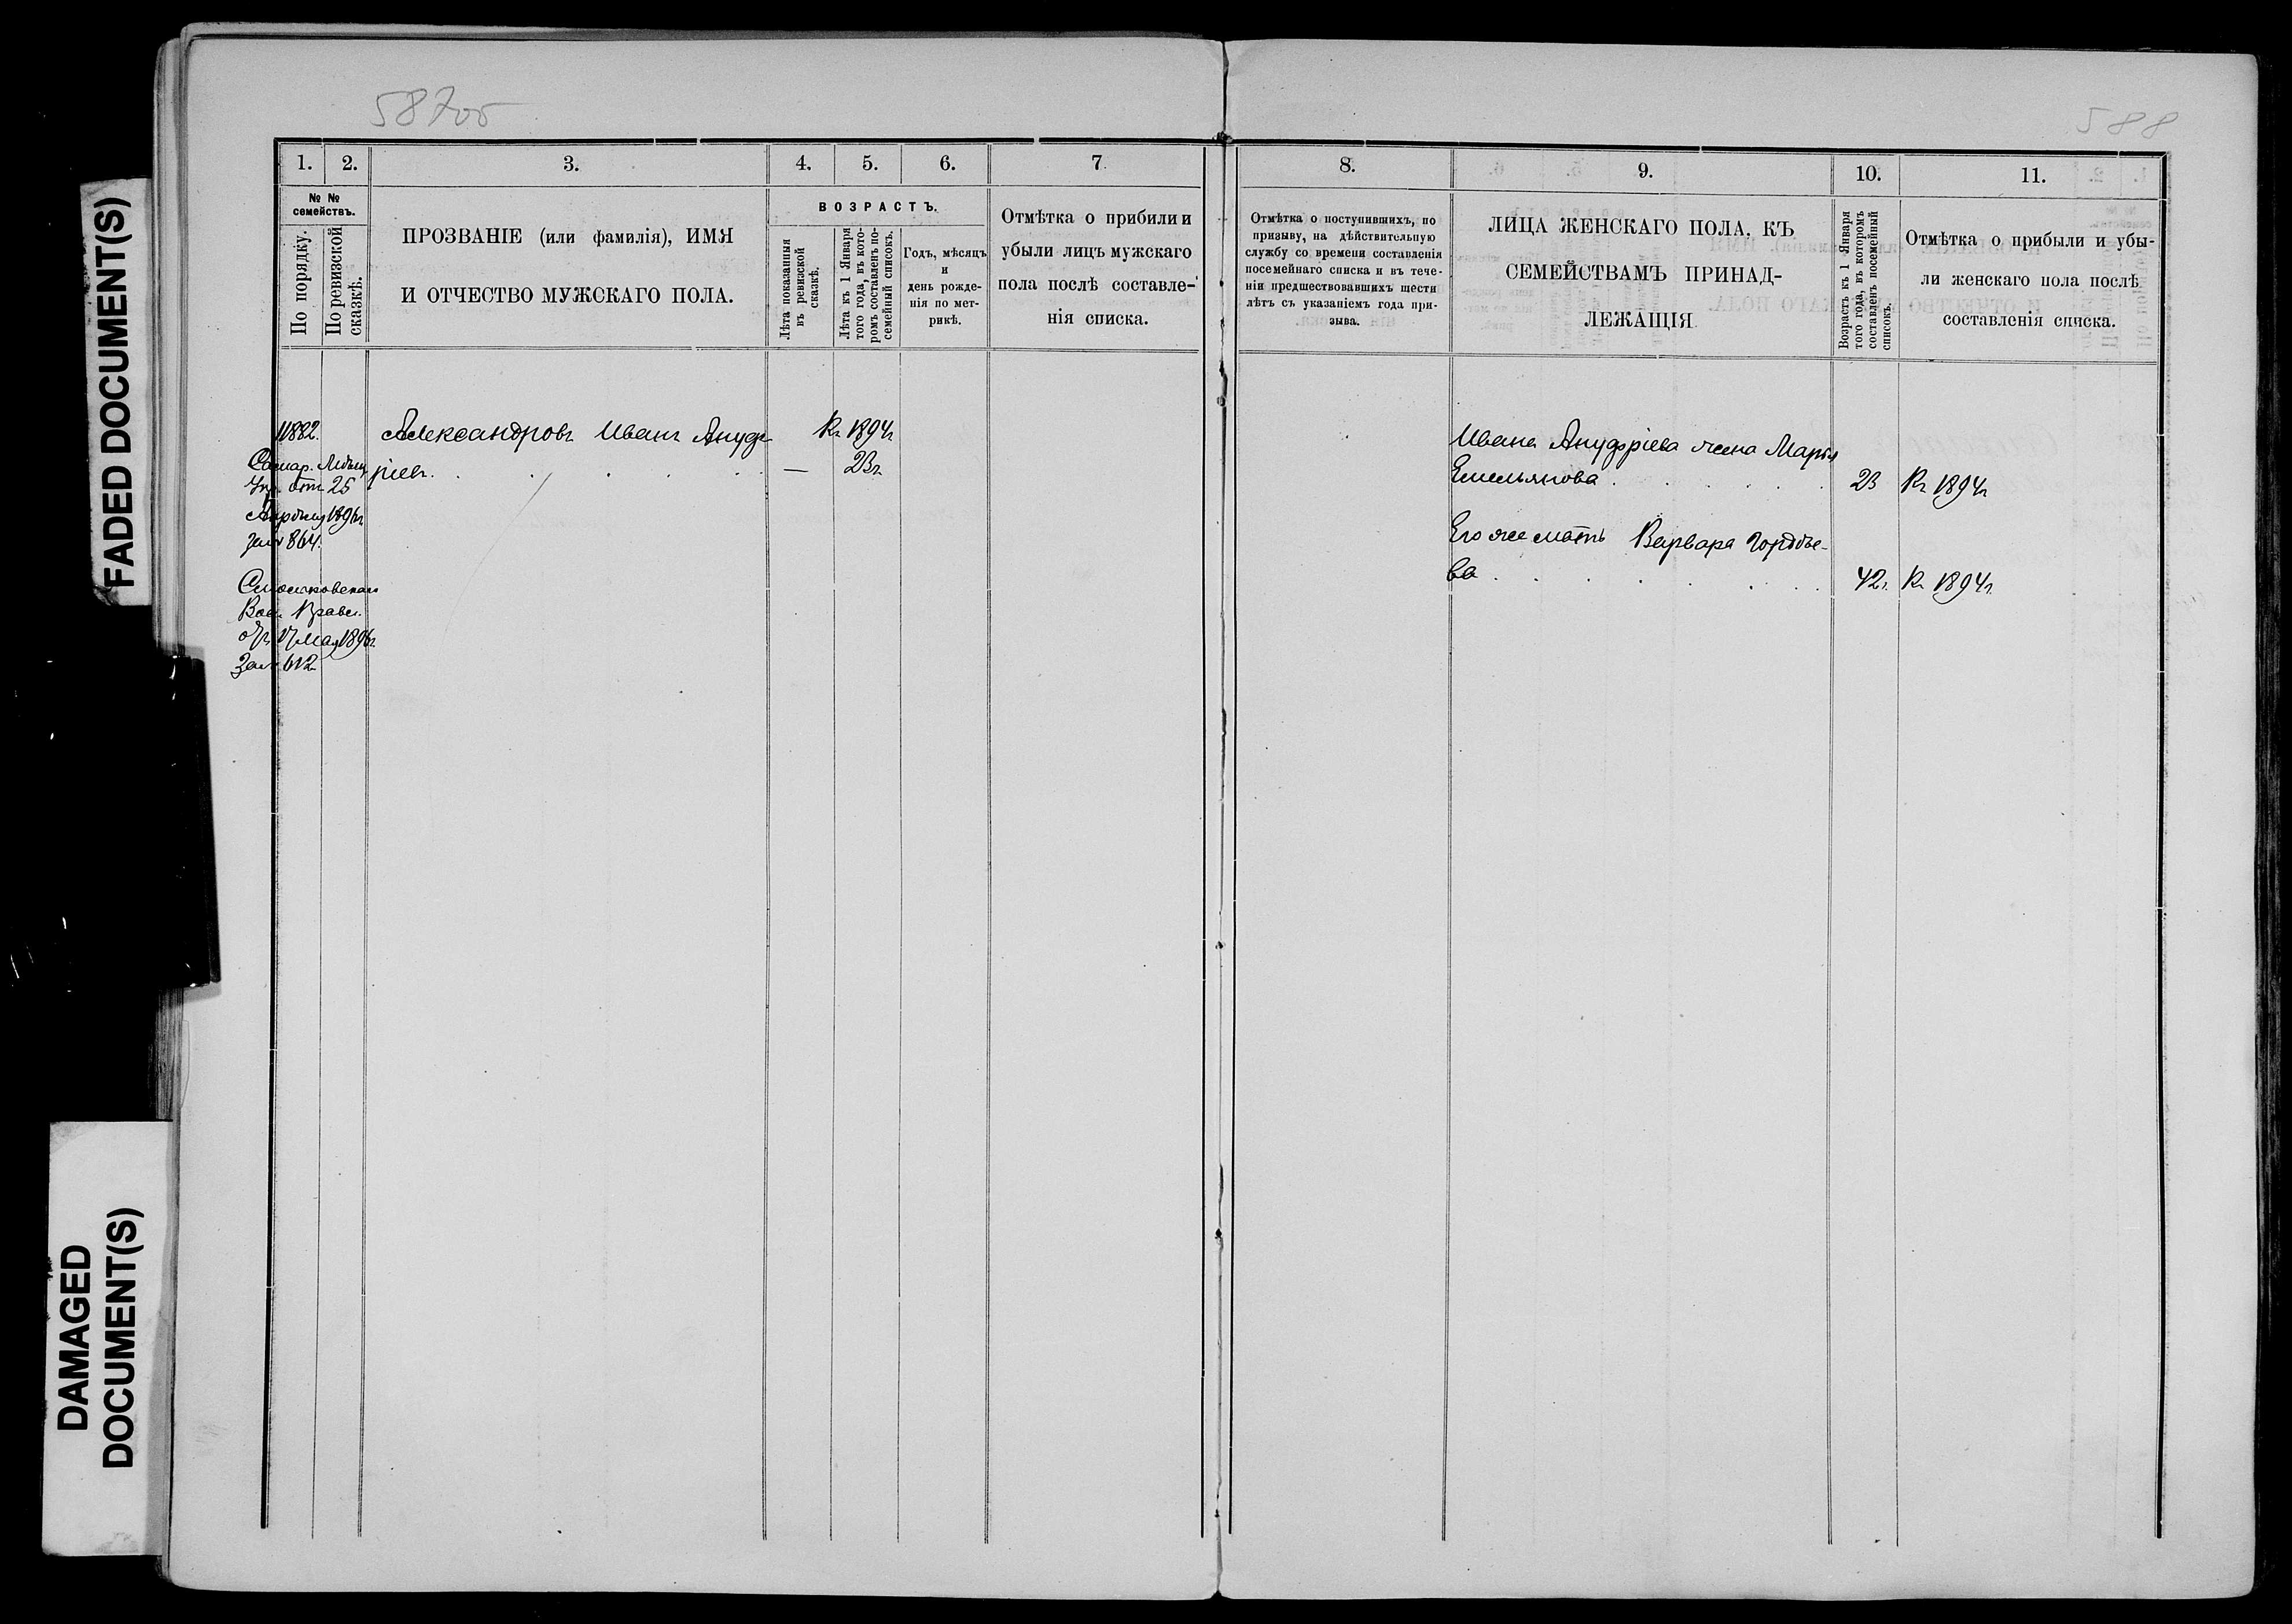 FADED DOCUMENT(S)
DAMAGED
DOCUMENT(S)
587об
1. 2. 3. 4. 5. 6. 7
№ №
семействъ.
По порядку.
По ревизской
сказкѣ.
ПРОЗВАНІЕ (или фамилія), ИМЯ
И ОТЧЕСТВО МУЖСКАГО ПОЛА.
ВОЗРАСТЪ.
Лѣта показанія
въ ревизской
сказкѣ.
Лѣта къ 1 Января
того года, въ кото-
ромъ составленъ по-
семейный списокъ.
Годъ, мѣсяцъ
и
день рожде-
нія по мет-
рикѣ.
Отмѣтка о прибили и
убыли лицъ мужскаго
пола послѣ составле-
нія списка.
11882. Александровъ Иванъ Ануф- Къ 1894г.
ріевъ. — 23г.
Упр. отъ 25
Апрѣля 1896г.
за № 864.
Вол. Правл.
отъ 17 Мая 1896г.
За № 612
588
8. 9. 10. 11.
Отмѣтка о поступившихъ, по
призыву, на дѣйствительную
службу со времени составленія
посемейнаго списка и въ тече-
ніи предшествовавшихъ шести
лѣтъ съ указаніемъ года при-
зыва.
ЛИЦА ЖЕНСКАГО ПОЛА, КЪ
СЕМЕЙСТВАМЪ ПРИНАД-
ЛЕЖАЩІЯ
Возрастъ къ 1 Января
того года, въ которомъ
составленъ посемейный
списокъ.
Отмѣтка о прибыли и убы-
ли женскаго пола послѣ
составленія списка.
Ивана Ануфріева жена Марья
Емельянова 23 Къ 1894г.
Его же мать Варвара Гордѣе-
ва 42. Къ 1894г.